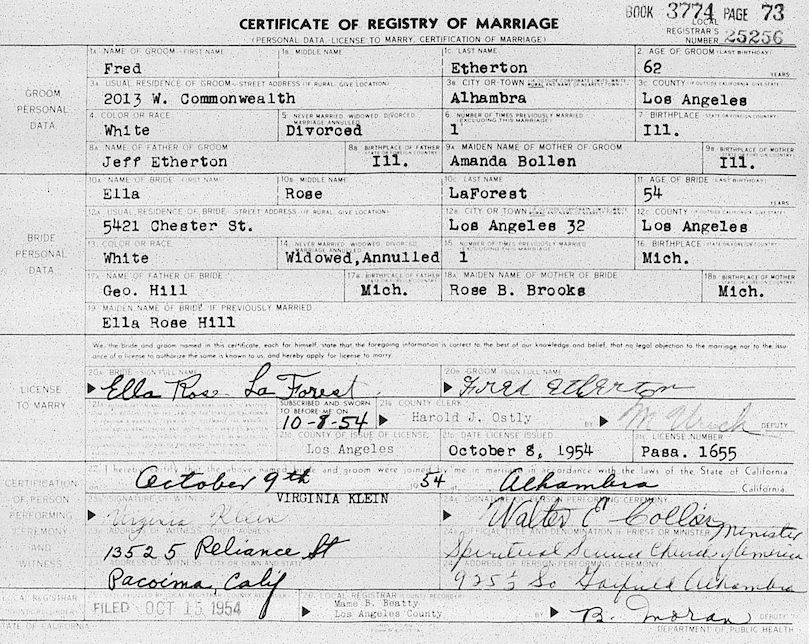 BOOK 3774 PAGE 73
CERTIFICATE OF REGISTRY OF MARRIAGE
(PERSONAL DATA, LICENSE TO MARRY, CERTIFICATION OF MARRIAGE)
LOCAL REGISTRAR'S NUMBER 25256
GROOM PERSONAL DATA
1A. NAME OF GROOM—FIRST NAME
Fred
1B. MIDDLE NAME
1C. LAST NAME
Etherton
2. AGE OF GROOM (LAST BIRTHDAY)
62 YEARS
3A. USUAL RESIDENCE OF GROOM—STREET ADDRESS (IF RURAL, GIVE LOCATION)
2013 W. Commonwealth
3B. CITY OR TOWN
Alhambra
3C. COUNTY
Los Angeles
4. COLOR OR RACE
White
5. NEVER MARRIED, WIDOWED, DIVORCED, MARRIAGE ANNULLED
Divorced
6. NUMBER OF TIMES PREVIOUSLY MARRIED (EXCLUDING THIS MARRIAGE)
1
7. BIRTHPLACE (STATE OR FOREIGN COUNTRY)
Ill.
8A. NAME OF FATHER OF GROOM
Jeff Etherton
8B. BIRTHPLACE OF FATHER
Ill.
9A. MAIDEN NAME OF MOTHER OF GROOM
Amanda Bollen
9B. BIRTHPLACE OF MOTHER
Ill.
BRIDE PERSONAL DATA
10A. NAME OF BRIDE—FIRST NAME
Ella
10B. MIDDLE NAME
Rose
10C. LAST NAME
LaForest
11. AGE OF BRIDE (LAST BIRTHDAY)
54 YEARS
12A. USUAL RESIDENCE OF BRIDE—STREET ADDRESS (IF RURAL, GIVE LOCATION)
5421 Chester St.
12B. CITY OR TOWN
Los Angeles 32
12C. COUNTY
Los Angeles
13. COLOR OR RACE
White
14. NEVER MARRIED, WIDOWED, DIVORCED, MARRIAGE ANNULLED
Widowed,Annulled
15. NUMBER OF TIMES PREVIOUSLY MARRIED (EXCLUDING THIS MARRIAGE)
1
16. BIRTHPLACE (STATE OR FOREIGN COUNTRY)
Mich.
17A. NAME OF FATHER OF BRIDE
Geo. Hill
17B. BIRTHPLACE OF FATHER
Mich.
18A. MAIDEN NAME OF MOTHER OF BRIDE
Rose B. Brooks
18B. BIRTHPLACE OF MOTHER
Mich.
19. MAIDEN NAME OF BRIDE IF PREVIOUSLY MARRIED
Ella Rose Hill
LICENSE TO MARRY
We, the bride and groom named in this certificate, each for himself, state that the foregoing information is correct to the best of our knowledge and belief, that no legal objection to the marriage nor to the issuance of a license to authorize the same is known to us, and hereby apply for license to marry.
20A. BRIDE (SIGN FULL NAME)
Ella Rose La Forest
20B. GROOM (SIGN FULL NAME)
Fred Etherton
SUBSCRIBED AND SWORN TO BEFORE ME ON
10-8-54
21A. COUNTY CLERK
Harold J. Ostly
BY
DEPUTY
21B. COUNTY OF ISSUE OF LICENSE
Los Angeles
21C. DATE LICENSE ISSUED
October 8, 1954
21D. LICENSE NUMBER
Pasa. 1655
CERTIFICATION OF PERSON PERFORMING CEREMONY AND WITNESS
22. I hereby certify that the above named bride and groom were joined by me in marriage in accordance with the laws of the State of California
October 9th 1954 Alhambra California
VIRGINIA KLEIN
23A. SIGNATURE OF WITNESS
Virginia Klein
ADDRESS OF WITNESS
13525 Reliance St
CITY OR TOWN AND STATE
Pacoima, Calif
24A. SIGNATURE OF PERSON PERFORMING CEREMONY
Walter E Collins
24B. OFFICIAL TITLE AND DENOMINATION (IF PRIEST OR MINISTER)
Minister
Spiritual Science Church of America
ADDRESS OF PERSON PERFORMING CEREMONY
925½ So Garfield Alhambra
LOCAL REGISTRAR
STATE OF CALIFORNIA
FILED OCT 15 1954
26. LOCAL REGISTRAR
Mame B. Beatty
Los Angeles County
BY
B. Moran
DEPUTY
DEPARTMENT OF PUBLIC HEALTH